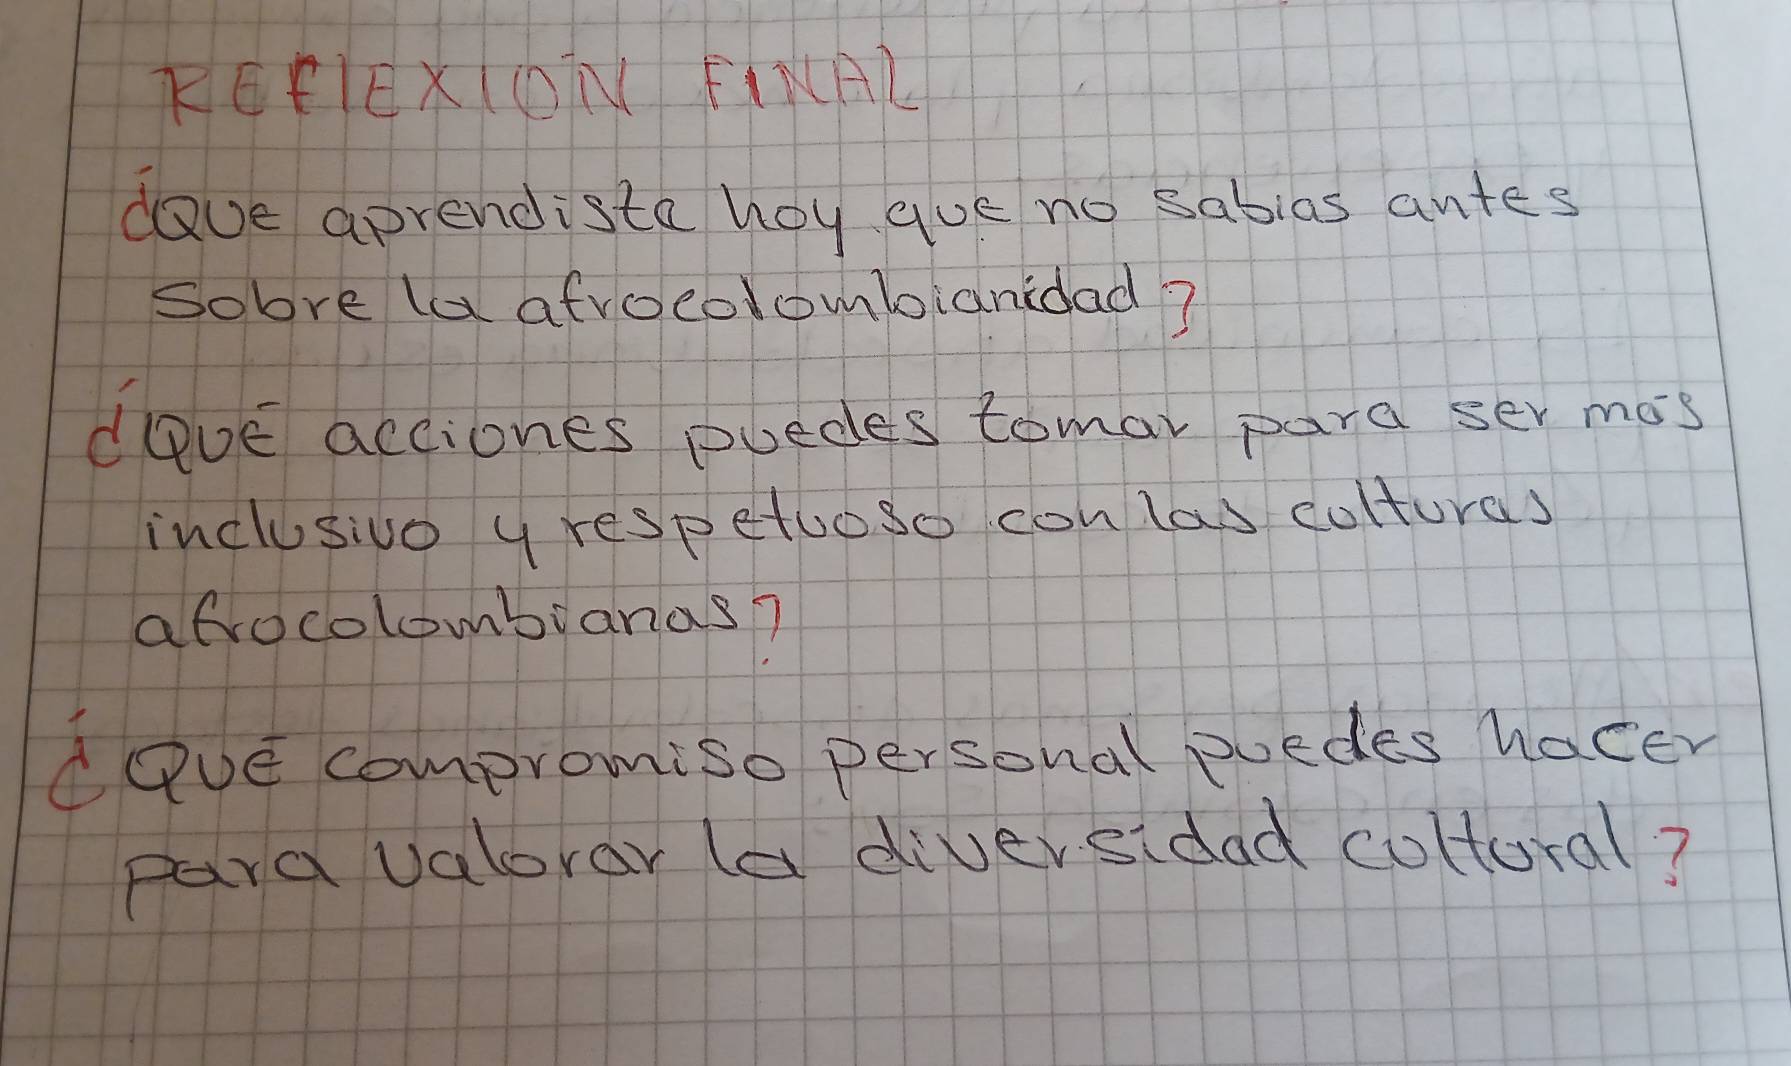 REFLEXIÓN FINAL
¿Que aprendiste hoy que no sabias antes
sobre la afrocolombianidad?
¿Qué acciones puedes tomar para ser más
inclusivo y respetuoso con las culturas
afrocolombianas?
¿Qué compromiso personal puedes hacer
para valorar la diversidad cultural?